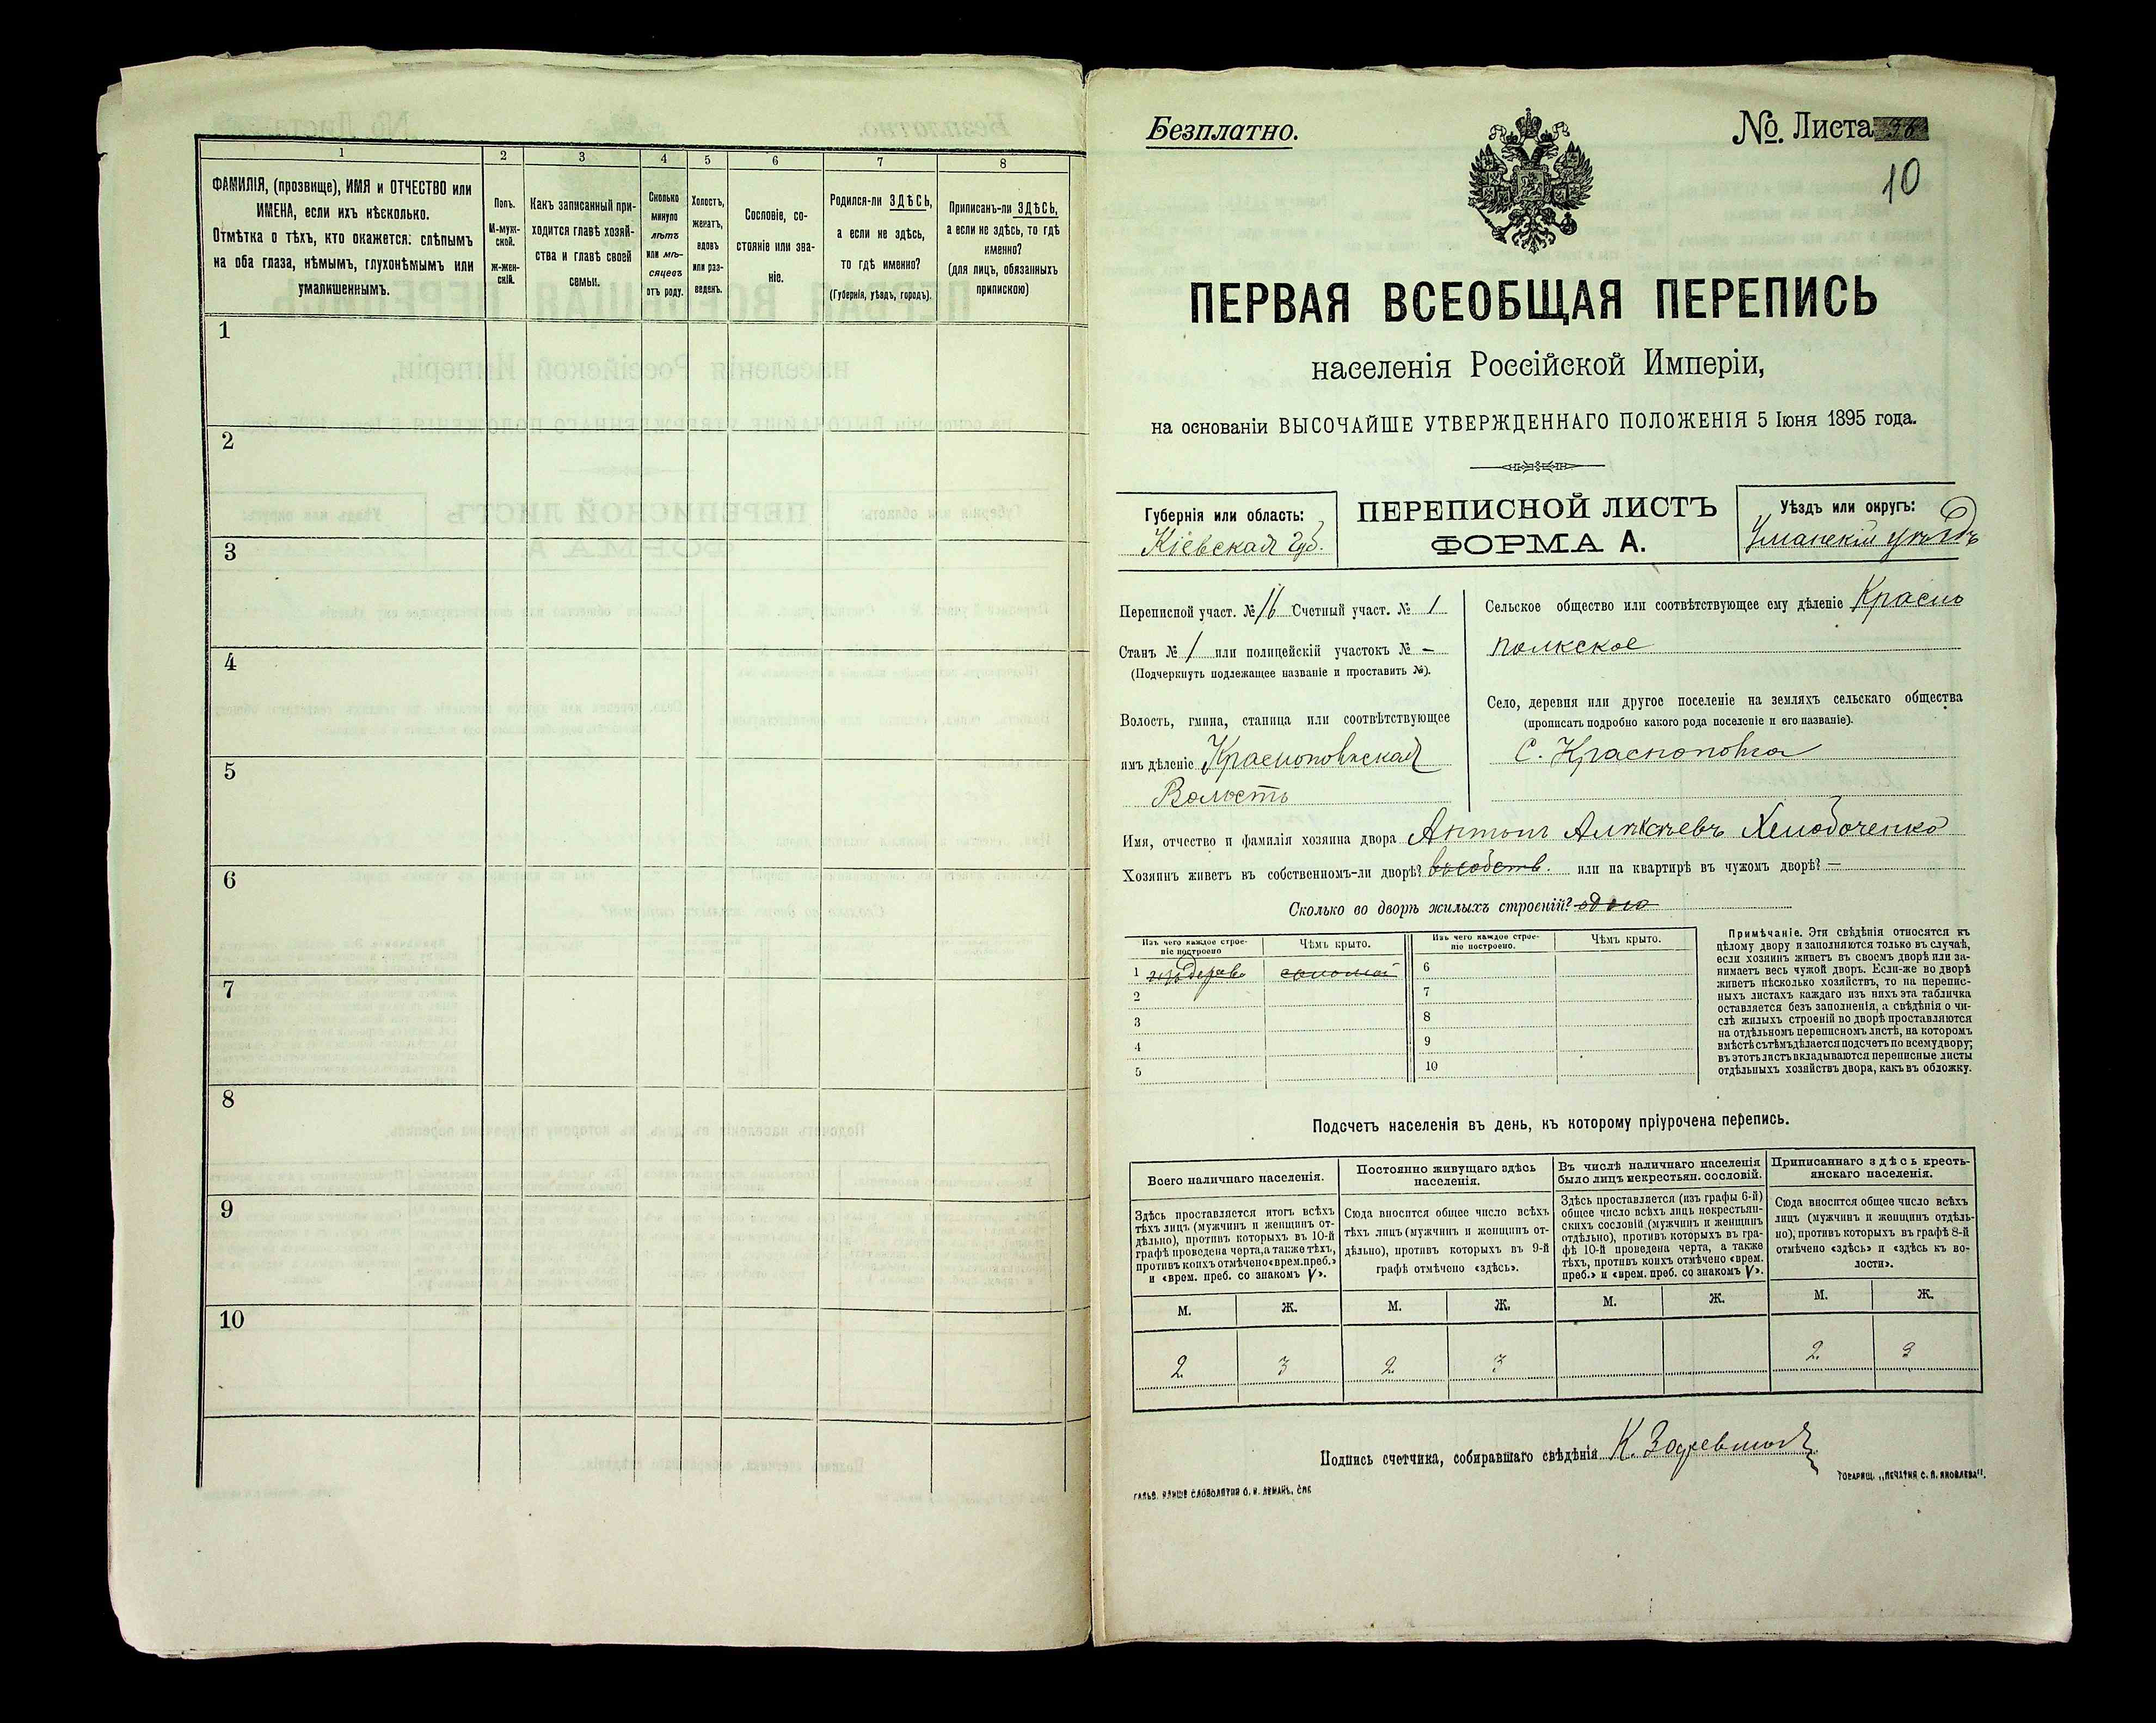 1 2 3 4 5 6 7 8
ФАМИЛІЯ, (прозвище), ИМЯ и ОТЧЕСТВО или
ИМЕНА, если ихъ нѣсколько.
Отмѣтка о тѣхъ, кто окажется: слѣпымъ
на оба глаза, нѣмымъ, глухонѣмымъ или
умалишеннымъ.
Полъ.
М-муж-
ской.
ж-жен-
скій.
Какъ записанный при-
ходится главѣ хозяй-
ства и главѣ своей
семьи.
Сколько
минуло
лѣтъ
или мѣ-
сяцевъ
отъ роду.
Холостъ,
женатъ,
вдовъ
или раз-
веденъ.
Сословіе, со-
стояніе или зва-
ніе.
Родился-ли ЗДѢСЬ,
а если не здѣсь,
то гдѣ именно?
(Губернія, уѣздъ, городъ).
Приписанъ-ли ЗДѢСЬ,
а если не здѣсь, то гдѣ
именно?
(для лицъ, обязанныхъ
припискою)
1
2
3
4
5
6
7
8
9
10
Безплатно.
№ Листа 36
10
ПЕРВАЯ ВСЕОБЩАЯ ПЕРЕПИСЬ
населенія Россійской Имперіи,
на основаніи ВЫСОЧАЙШЕ УТВЕРЖДЕННАГО ПОЛОЖЕНІЯ 5 Іюня 1895 года.
Губернія или область:
Кіевская Губ.
ПЕРЕПИСНОЙ ЛИСТЪ
ФОРМА А.
Уѣздъ или округъ:
Уманскій уѣздъ
Переписной участ. № 16 Счетный участ. № 1
Станъ № 1 или полицейскій участокъ № —
(Подчеркнуть подлежащее названіе и проставить №).
Волость, гмина, станица или соотвѣтствующее
имъ дѣленіе Краснополкская
Волость
Сельское общество или соотвѣтствующее ему дѣленіе Красно
полкское
Село, деревня или другое поселеніе на земляхъ сельскаго общества
(прописать подробно какого рода поселеніе и его названіе).
С. Краснополка
Имя, отчество и фамилія хозяина двора Антонъ Алексѣевъ
Хозяинъ живетъ въ собственномъ-ли дворѣ? въ собств. или на квартирѣ въ чужомъ дворѣ? —
Сколько во дворѣ жилыхъ строеній? одно
Изъ чего каждое строе-
ніе построено
Чѣмъ крыто.
Изъ чего каждое строе-
ніе построено.
Чѣмъ крыто.
1 изъ дерева соломой 6
2 7
3 8
4 9
5 10
Примѣчаніе. Эти свѣдѣнія относятся къ
цѣлому двору и заполняются только въ случаѣ,
если хозяинъ живетъ въ своемъ дворѣ или за-
нимаетъ весь чужой дворъ. Если-же во дворѣ
живетъ нѣсколько хозяйствъ, то на перепис-
ныхъ листахъ каждаго изъ нихъ эта табличка
оставляется безъ заполненія, а свѣдѣнія о чи-
слѣ жилыхъ строеній во дворѣ проставляются
на отдѣльномъ переписномъ листѣ, на которомъ
вмѣстѣ съ тѣмъ дѣлается подсчетъ по всему двору;
въ этотъ листъ вкладываются переписные листы
отдѣльныхъ хозяйствъ двора, какъ въ обложку.
Подсчетъ населенія въ день, къ которому пріурочена перепись.
Всего наличнаго населенія.
Здѣсь проставляется итогъ всѣхъ
тѣхъ лицъ (мужчинъ и женщинъ от-
дѣльно), противъ которыхъ въ 10-й
графѣ проведена черта, а также тѣхъ,
противъ коихъ отмѣчено «врем. преб.»
и «врем. преб. со знакомъ V».
Постоянно живущаго здѣсь
населенія.
Сюда вносится общее число всѣхъ
тѣхъ лицъ (мужчинъ и женщинъ от-
дѣльно), противъ которыхъ въ 9-й
графѣ отмѣчено «здѣсь».
Въ числѣ наличнаго населенія
было лицъ некрестьян. сословій.
Здѣсь проставляется (изъ графы 6-й)
общее число всѣхъ лицъ некрестьян-
скихъ сословій (мужчинъ и женщинъ
отдѣльно), противъ которыхъ въ гра-
фѣ 10-й проведена черта, а также
тѣхъ, противъ коихъ отмѣчено «врем.
преб.» и «врем. преб. со знакомъ V».
Приписаннаго здѣсь кресть-
янскаго населенія.
Сюда вносится общее число всѣхъ
лицъ (мужчинъ и женщинъ отдѣль-
но), противъ которыхъ въ графѣ 8-й
отмѣчено «здѣсь» и «здѣсь къ во-
лости».
М. Ж. М. Ж. М. Ж. М. Ж.
2 3 2 3 2 3
Подпись счетчика, собиравшаго свѣдѣнія К.
ГАЛЬВ. КЛИШЕ СЛОВОЛИТНИ О. И. ЛЕМАНЪ, СПБ
ТОВАРИЩ. „ПЕЧАТНЯ С. П. ЯКОВЛЕВА".